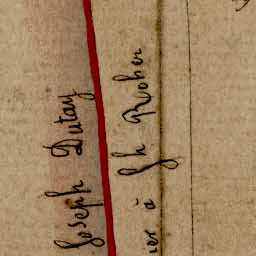 Joseph Dutay
ier à Jh Rober